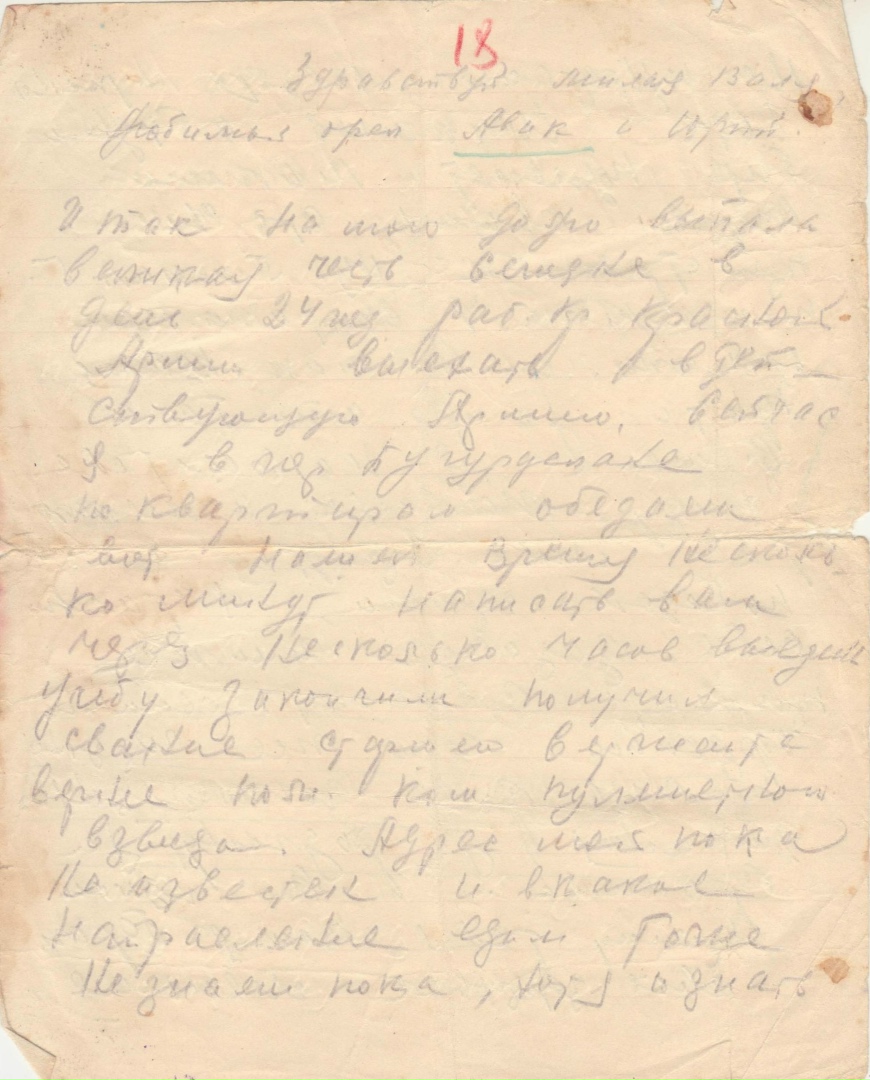 18
Здравствуй милая Валя,
Любимыя орел Авик и Юрий.
И так на мою долю выпала
великая честь сегодне в
день 24 год раб. кр. Красной
Армии выехать в дей-
ствующую Армию. Сейчас
я в гор Бугуруслане
по квартирам обедаем
вот нашел время несколь
ко минут написать вам
через несколько часов выедем
учебу закончили получил
звание старшего сержанта
вернее пом. ком пулеметного
взвода. Адрес мой пока
не известен и в какое
направление едим точне
не знаем пока, хотя и знать